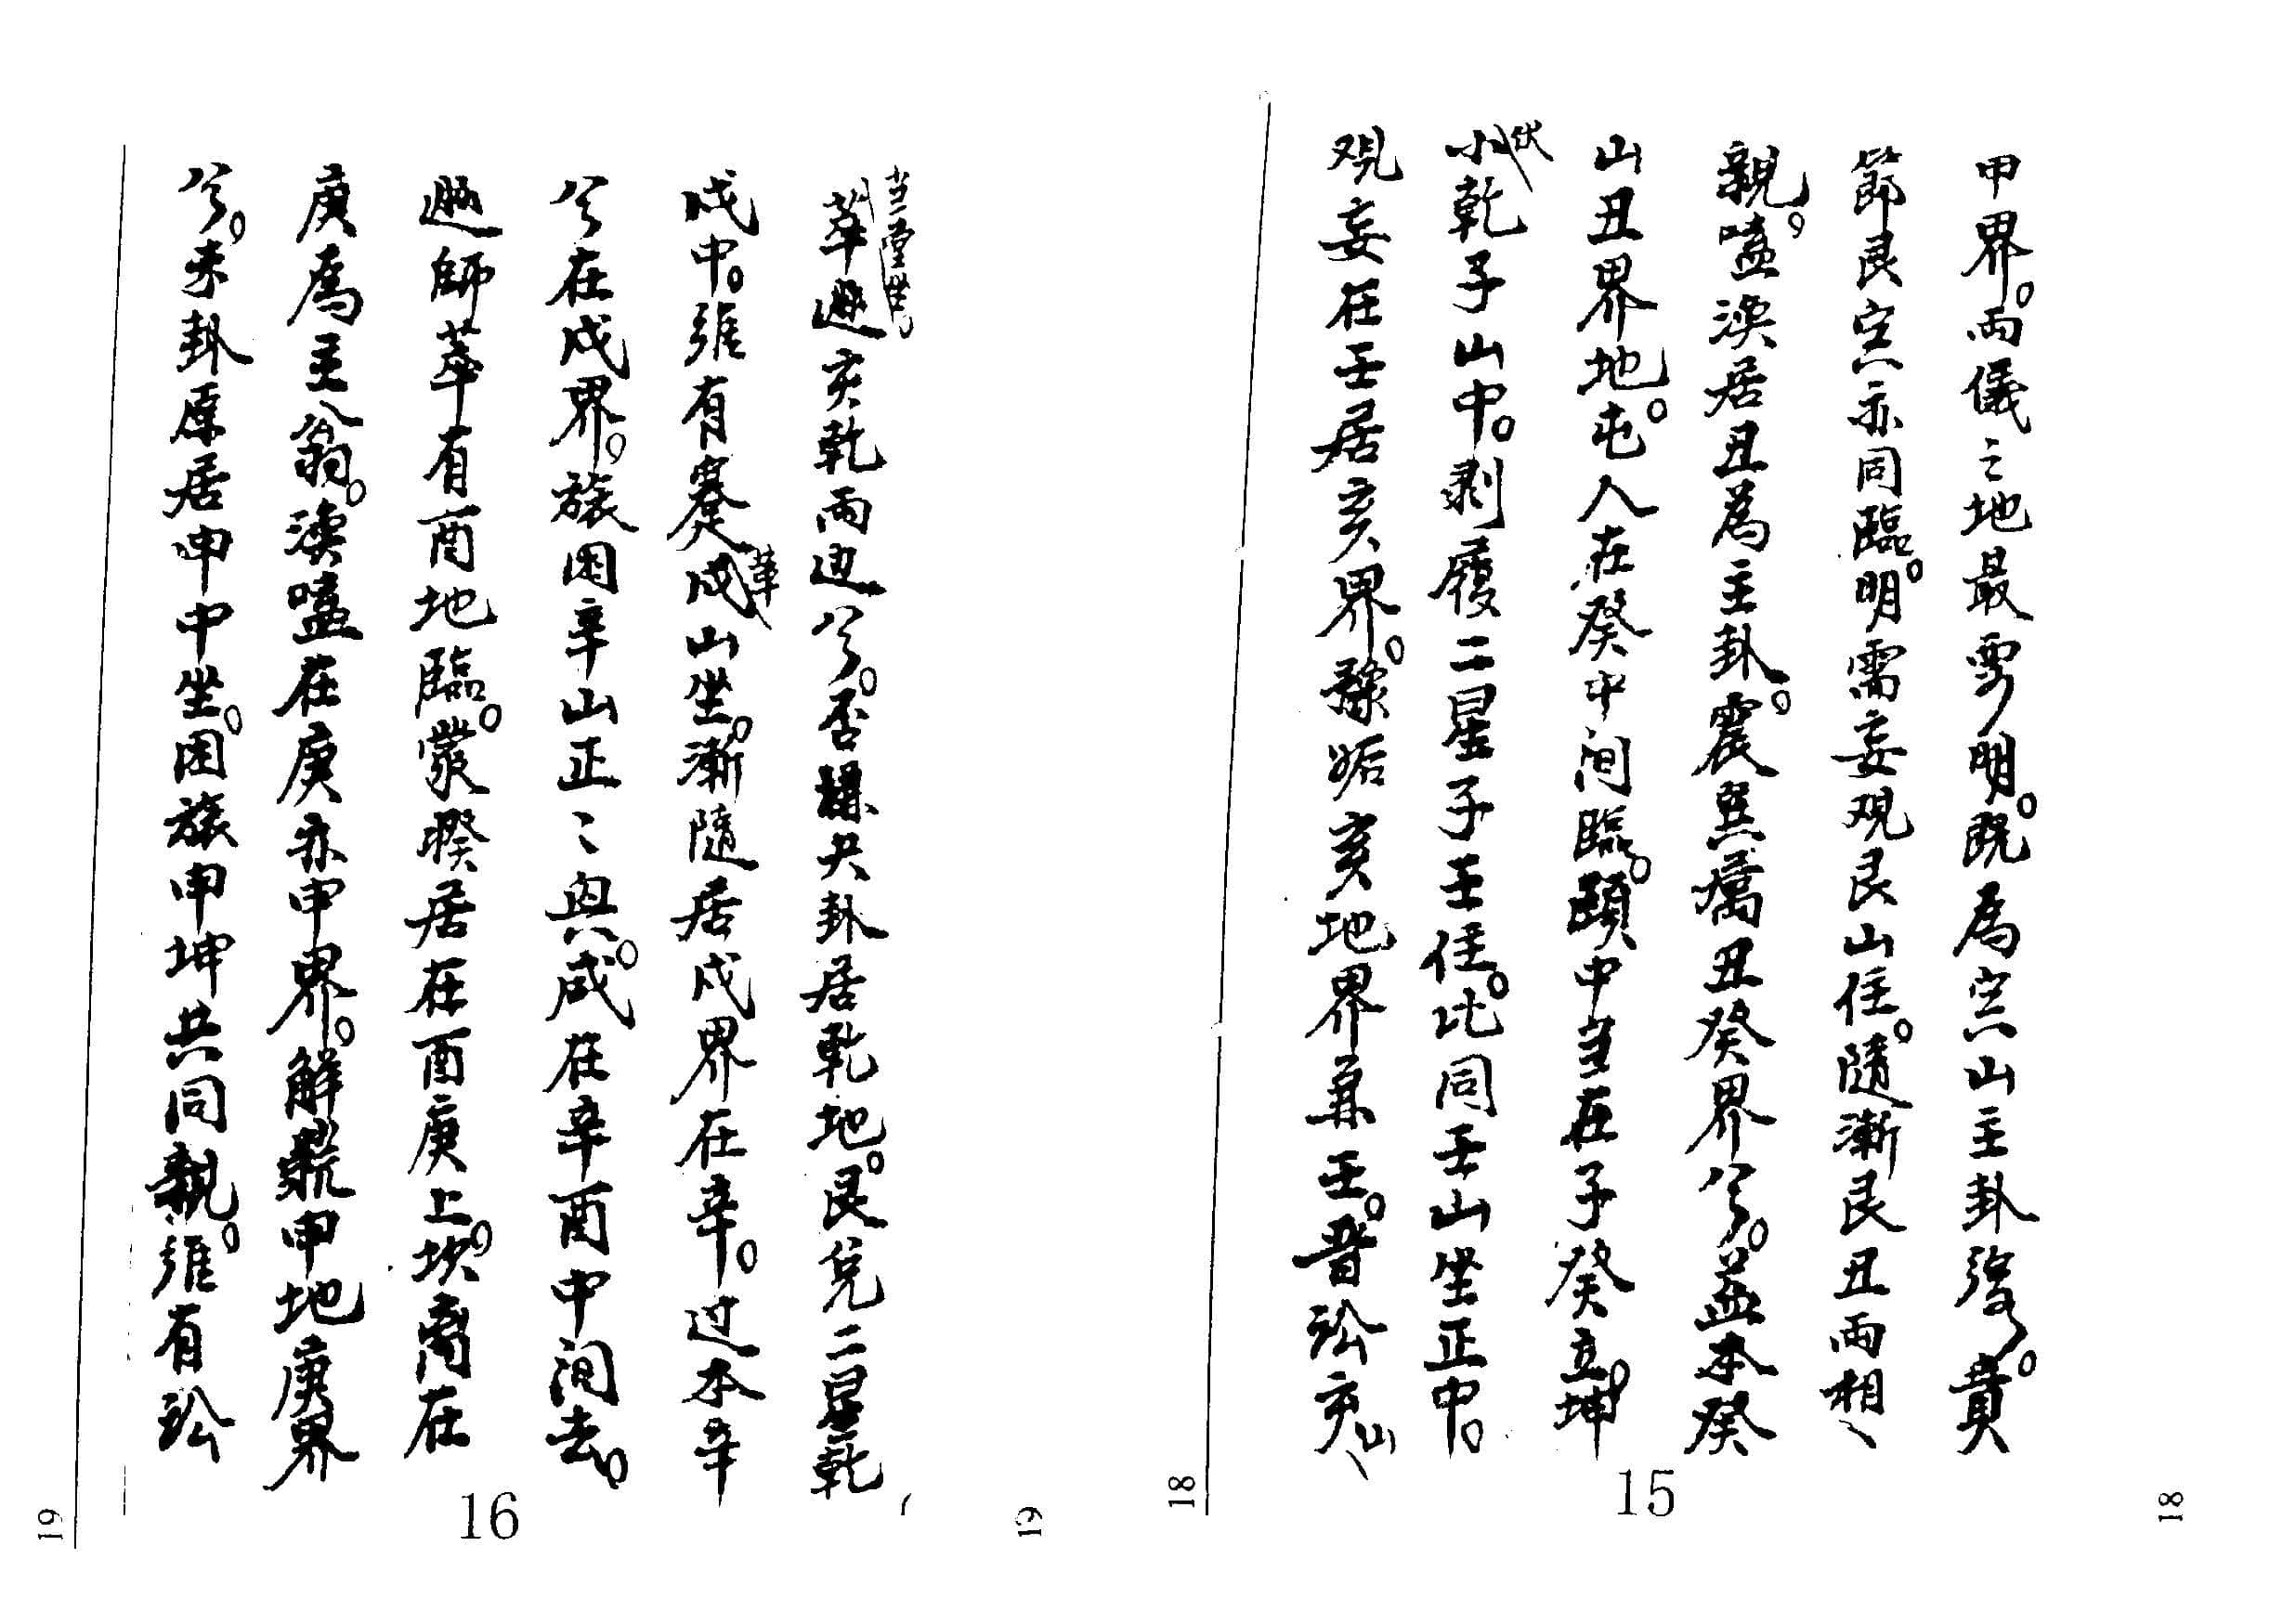 甲界。两儀之地最要明。既為宫山主卦強。賁
節艮宫亦同臨。明需妄观艮山住。随漸艮丑两相〻
親。嗑渙居丑為主卦。震巽癘丑癸界兮。益本癸
山丑界地。屯入在癸中间臨。頤中孚在子癸立。坤
小乾子山中。剥履二星子壬住。比同壬山坐正中。
伏
观妄在壬居亥界。豫姤亥地界兼壬。晋訟亥
山
15
18
18
萃遯亥乾两边兮。否 夬卦居乾地。艮兑二星乾
当堂坐
戌中。雖有蹇成山坐。漸隨居戌界在辛。过本辛
革
兮在戌界。旅困辛山正〻與。咸在辛酉中间去。
遯師萃有酉地臨。蒙暌居在酉庚上。坎离在
庚為主翁。渙嗑在庚亦申界。解鼎申地庚界
兮。未卦原居申中坐。困旅申坤共同親。雖有訟
16
19
19